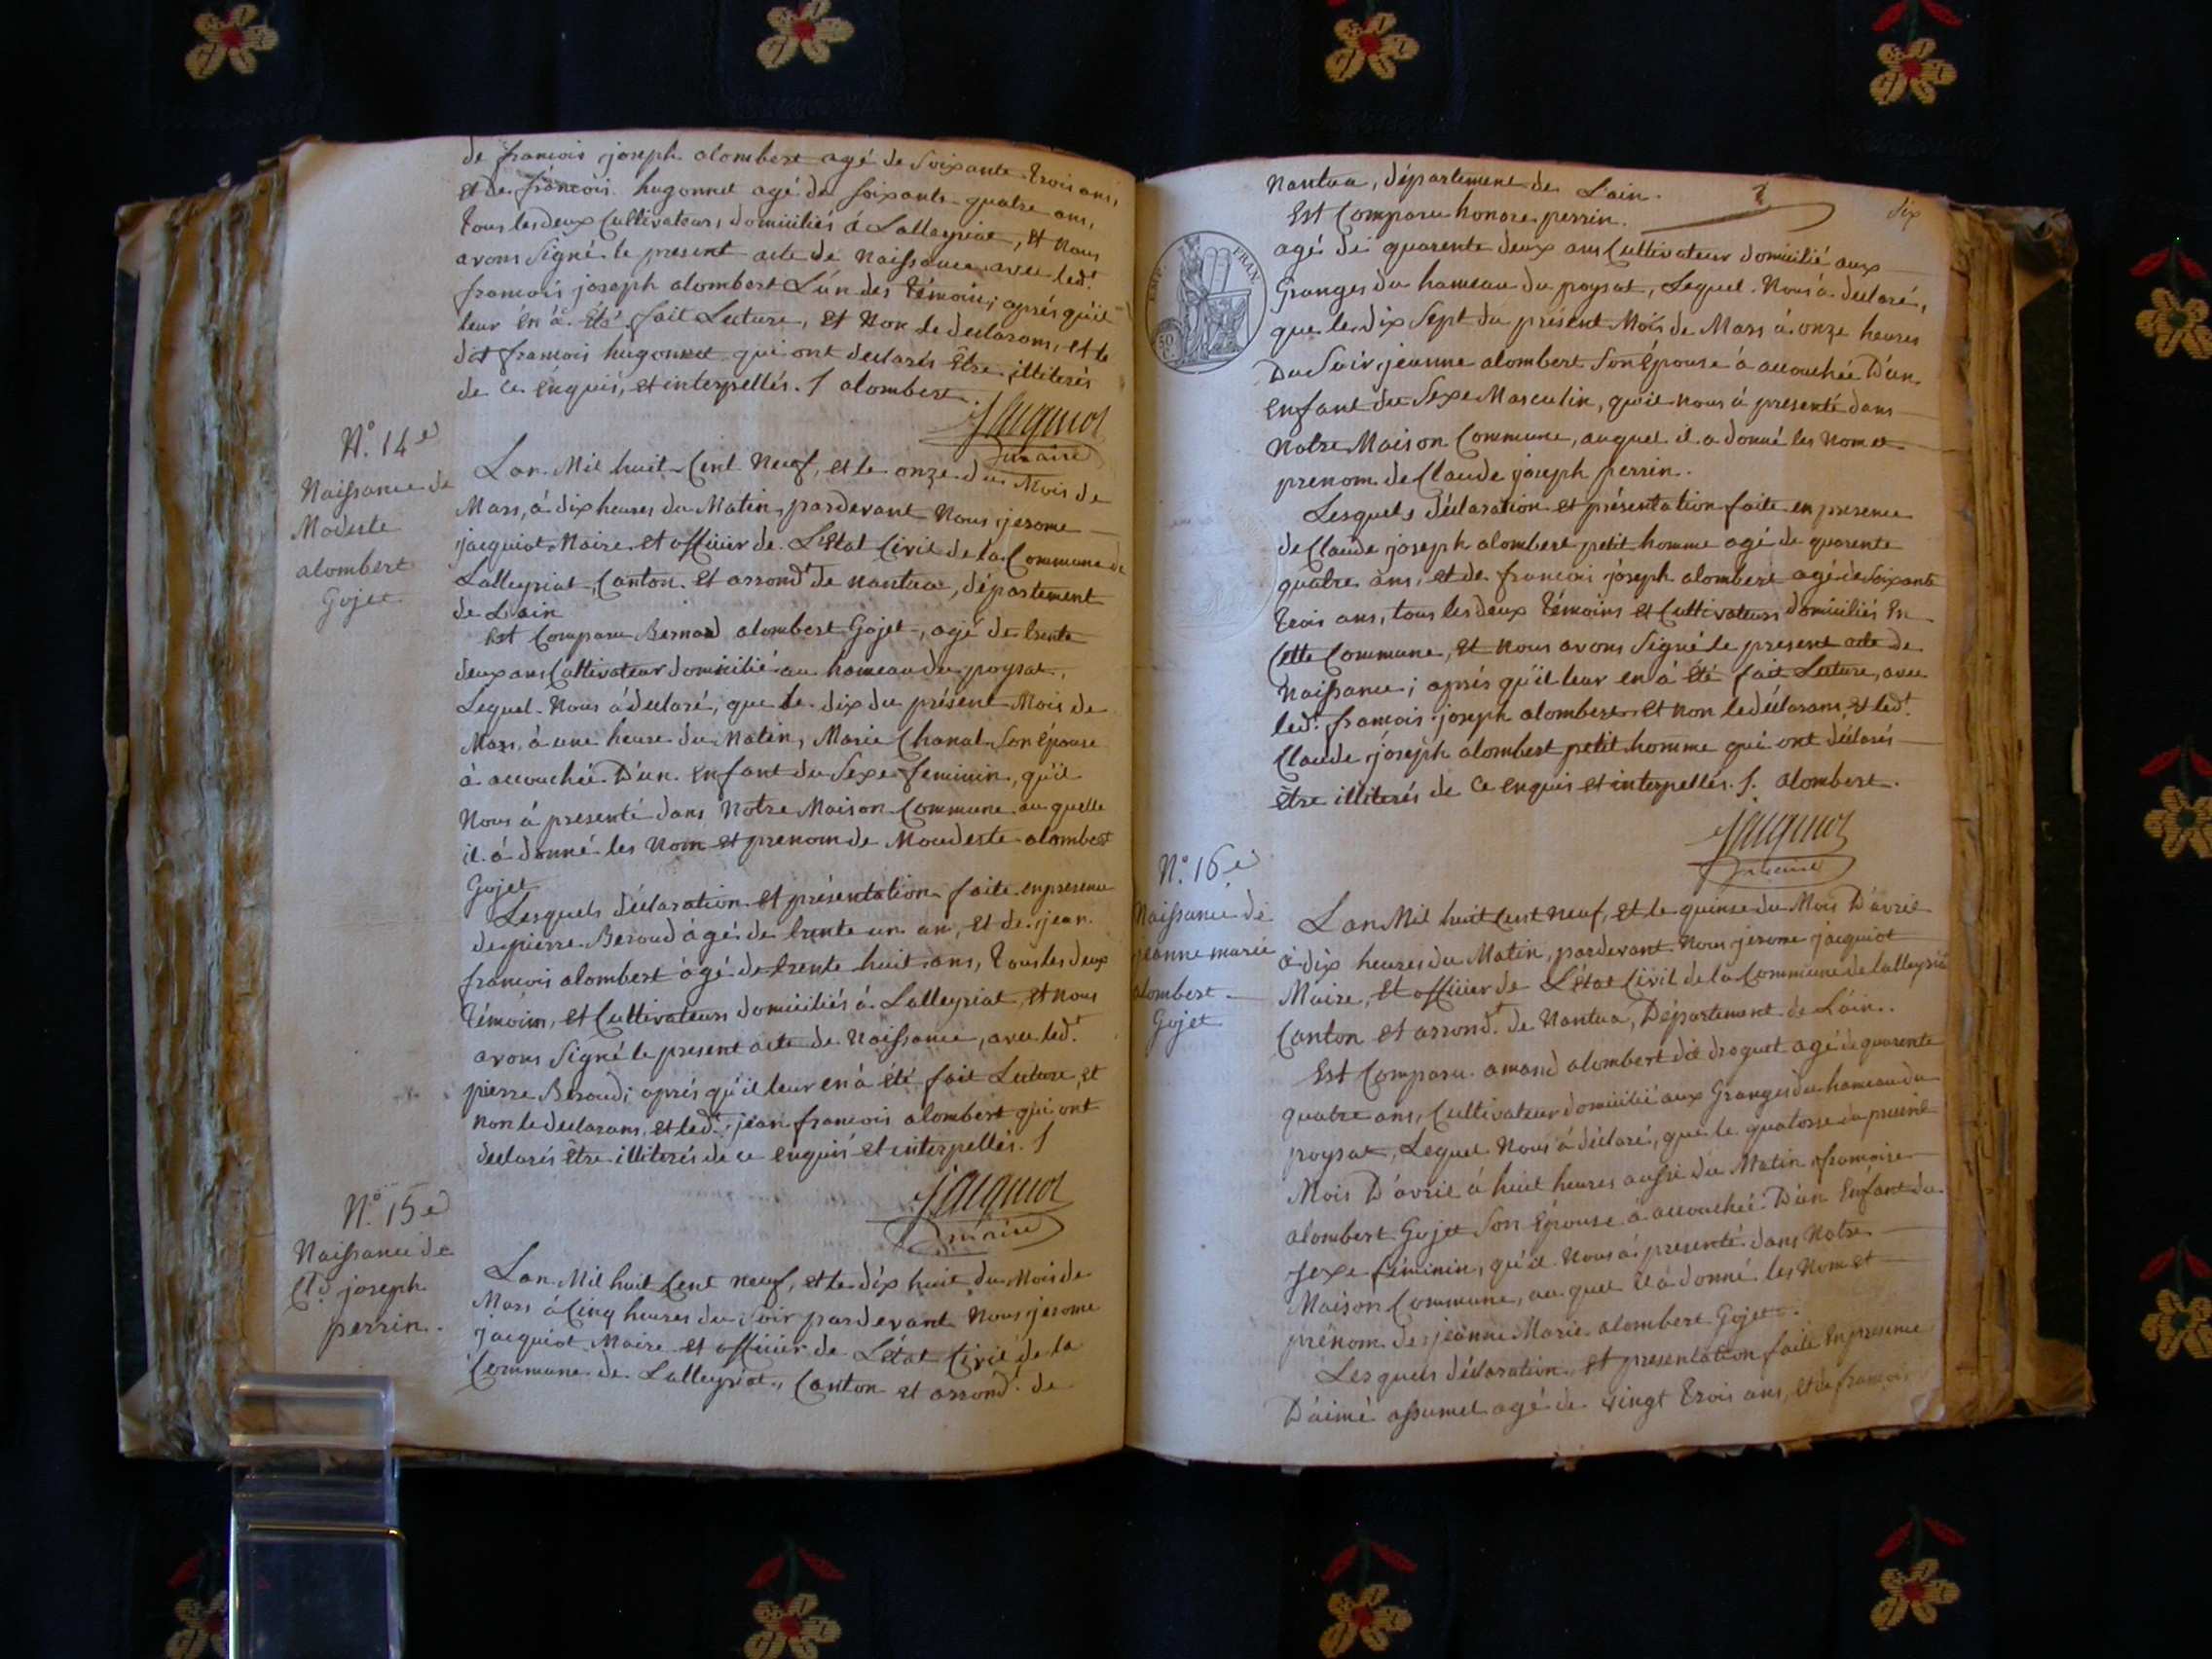 de francois joseph alombert agé de Soixante trois ans,
et de francois hugonnet agé de soixante quatre ans,
tous les deux Cultivateurs domiciliés á Lalleyriat, et Nous
avons Signé le present acte de Naissance avec led.t
francois joseph alombert L'un des témoins; aprés qu'il
leur en á été fait Lecture, et Non le declarans, et le
dit francois hugonnet qui ont declarés être illiterés
de ce enquis, et interpellés. / alombert.
Jacquiot
maire
N.o 14e
Naissance de
Modeste
alombert
Gojet
Lan Mil huit Cent Neuf, et le onze du Mois de
Mars, á dix heures du Matin, pardevant Nous jerome
jacquiot Maire et officier de L'état Civil de la Commune de
Lalleyriat, Canton et arrond.t de nantua, département
de Lain
Est Comparu Bernard alombert Gojet, agé de trente
deux ans Cultivateur domicilié au hameau du poysat,
Lequel Nous á declaré, que le dix du présent Mois de
Mars, á une heure du Matin, Marie Chanal Son épouse
á accouchée D'un enfant du Sexe feminin, qu'il
Nous á presenté dans Notre Maison Commune au quelle
il á donné les Nom et prenom de Moudeste alombert
Gojet
Lesquels déclaration et présentation faite en presence
de pierre Beroud ágé de trente un an, et de jean
francois alombert ágé de trente huit ans, tous les deux
témoins, et Cultivateurs domiciliés á Lalleyriat et nous
avons Signé le present acte de Naissance, avec led.t
pierre Beroud; aprés qu'il leur en á été fait Lecture, et
non le declarans, et led.t jean francois alombert qui ont
declarés être illiterés de ce enquis et interpellés. /
Jacquiot
maire
N.o 15e
Naissance de
Cl.d joseph
perrin.
Lan Mil huit Cent neuf, et le dix huit du Mois de
Mars á Cinq heures du Soir pardevant Nous jerome
jacquiot Maire et officier de L'état Civil de la
Commune de Lalleyriat, Canton et arrond.t de
dix
Nantua, département de Lain.
Est Comparu honore perrin.
EMP. FRAN.
50
C.
agé de quarente deux ans Cultivateur domicilié aux
Granges du hameau du poysat, Lequel Nous á declaré,
que le dix Sept du présent Mois de Mars á onze heures
Du Soir, jeanne alombert Son épouse á accouchée D'un
enfant du Sexe Masculin, qu'il nous á presenté dans
Notre Maison Commune, auquel il a donné les Nom et
prenom de Claude joseph perrin.
Lesquels déclaration et présentation faite en presence
de Claude joseph alombert petit homme agé de quarente
quatre ans, et de francois joseph alombert agé de Soixante
trois ans, tous les deux témoins et Cultivateurs domiciliés En
Cette Commune, et nous avons Signé le present acte de
Naissance; aprés qu'il leur en á été fait Lecture, avec
led.t francois joseph alombert et non le déclarans, et led.t
Claude joseph alombert petit homme qui ont déclarés
être illiterés de ce enquis et interpellés. /. alombert.
Jacquiot
maire
N.o 16e
Naissance de
jeanne marie
alombert
Gojet
Lan Mil huit Cent neuf, et le quinse du Mois D'avril
á dix heures du Matin, pardevant Nous jerome jacquiot
Maire, et officier de L'état Civil de la Commune de lalleyria
Canton et arrond.t de Nantua, Département de Láin.
Est Comparu amand alombert dit droguet agé de quarente
quatre ans, Cultivateur domicilié aux Granges du hameau du
poysat, Lequel Nous á déclaré, que le quatorse du présent
Mois D'avril á huit heures aussi du Matin francoise
alombert Gojet Son épouse á accouchée D'un Enfant du
Sexe féminin, qu'il Nous á presenté dans Notre
Maison Commune, au quel il á donné les Nom et
prénom de jeanne Marie alombert Gojet.
Lesquels déclaration et presentation faite En presence
D'aimé assumel agé de vingt trois ans, et de francois